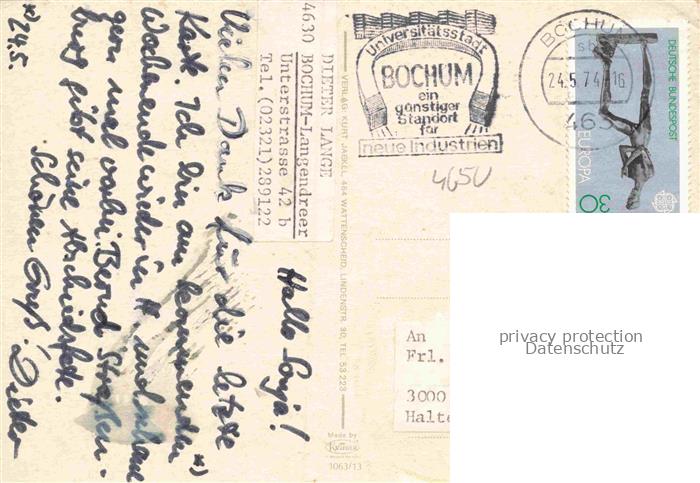 DIETER LANGE
4630 BOCHUM-Langendreer
Unterstrasse 42 b
Tel.(02321)289122
Hallo Sonja!
Vielen Dank für die letzte
Karte. Ich bin am kommenden *)
Wochenende wieder in H. und schaue
gern mal vorbei. Bernd
burg gibt seine Abschiedsfete.
Schönen Gruß! Dieter
*) 24.5
VERLAG KURT JAEKEL, 464 WATTENSCHEID, LINDENSTR. 30, TEL. 53 223
Made by
Krüger
1063/13
Universitätsstadt
BOCHUM
ein
günstiger
Standort
für
neue Industrien
BOCHUM
sb
24.5.74-16
463
4650
DEUTSCHE BUNDESPOST
EUROPA
CEPT
30
An
Frl.
3000
Halte
privacy protection
Datenschutz